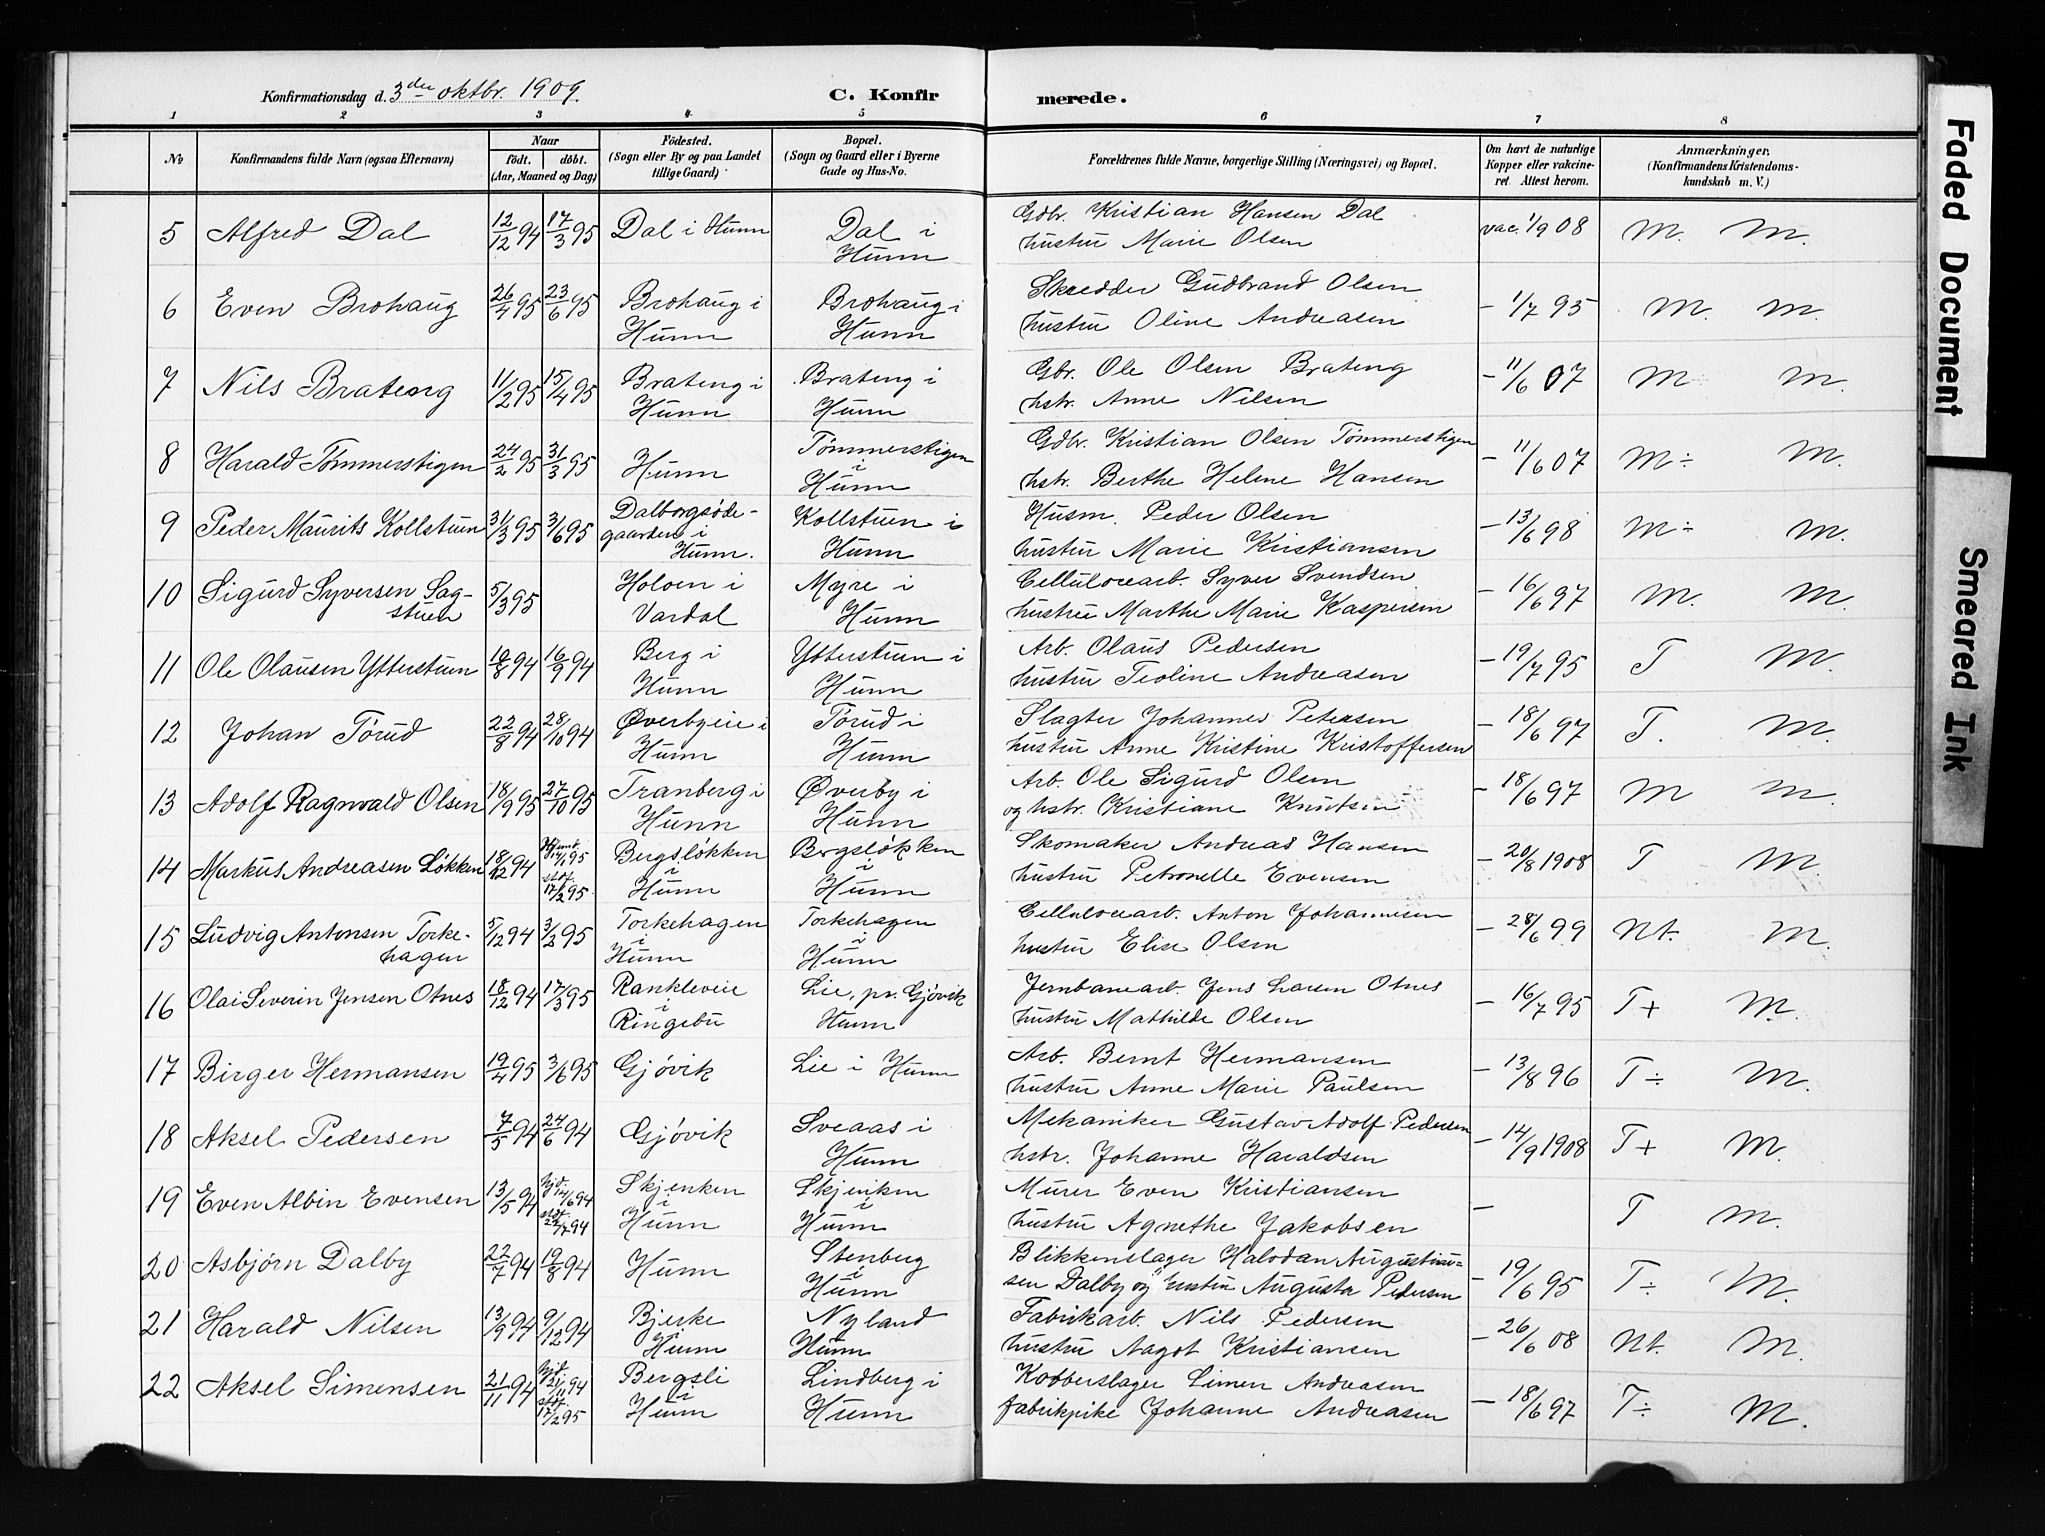 Konfirmationsdag d. 3die oktbr. 1909.
C. Konfirmerede.
1 2 3 4 5 6 7 8
No
Konfirmandens fulde Navn (ogsaa Efternavn)
Naar
födt. döbt.
(Aar, Maaned og Dag)
Födested.
(Sogn eller By og paa Landet
tillige Gaard)
Bopæl.
(Sogn og Gaard eller i Byerne
Gade og Hus-No.
Forældrenes fulde Navne, borgerlige Stilling (Næringsvei) og Bopæl.
Om havt de naturlige
Kopper eller vakcine-
ret Attest herom.
Anmærkninger,
(Konfirmandens Kristendoms-
kundskab m. V.)
5 Alfred Dal 12/12 94 17/3 95 Dal i Hunn Dal i Hunn Gdbr. Kristian Hansen Dal vac. 1/9 08 M. M.
hustru Marie Olsen
6 Even Brohaug 26/4 95 23/6 95 Brohaug i Hunn Brohaug i Hunn Skrædder Gudbrand Olsen – 1/7 95 M. M.
hustru Oline Andreasen
7 Nils Brateng 11/2 95 15/4 95 Brateng i Hunn Brateng i Hunn Gbr. Ole Olsen Brateng – 11/6 07 M M.
hstr. Anne Nilsen
8 Harald Tømmerstigen 24/2 95 31/3 95 Hunn Tømmerstigen i Hunn Gdbr. Kristian Olsen Tømmerstigen – 11/6 07 M÷ M.
hstr. Berthe Helene Hansen
9 Peder Maurits Kollstuen 31/3 95 3/6 95 Dalborgsøde-gaarden i Hunn. Kollstuen i Hunn Husm. Peder Olsen – 13/6 98 M÷ M.
hustru Marie Kristiansen
10 Sigurd Syversen Sag-stuen 5/3 95 Holven i Vardal Myre i Hunn Cellulosearb. Syver Svendsen – 16/6 97 M. M.
hustru Marthe Marie Kaspersen
11 Ole Olausen Ytterstuen 10/8 94 16/9 94 Berg i Hunn Ytterstuen i Hunn Arb. Olaus Pedersen – 19/7 95 T M.
hustru Teoline Andreasen
12 Johan Tørud 22/8 94 28/10 94 Øverbyeie i Hunn Tørud i Hunn Slagter Johannes Petersen – 18/6 97 T. M.
hustru Anne Kristine Kristoffersen
13 Adolf Ragnvald Olsen 18/9 95 27/10 95 Tranberg i Hunn Øverby i Hunn Arb. Ole Sigurd Olsen – 18/6 97 M M.
og hstr. Kristiane Knutsen
14 Markus Andreasen Løkken 18/12 94 stdf. 17/2 95. Bergsløkken i Hunn Bergsløkken i Hunn Skomaker Andreas Hansen – 20/8 1908 T M.
hustru Petronelle Evensen
15 Ludvig Antonsen Torke-hagen 5/12 94 3/2 95 Torkehagen i Hunn Torkehagen i Hunn Cellulosearb. Anton Johannesen – 28/6 99 Nt. M.
hustru Elise Olsen
16 Olai Severin Jensen Otnes 18/12 94 17/3 95 Rankleveie i Ringebu Lie, pr. Gjøvik Hunn Jernbanearb. Jens Larsen Otnes – 16/7 95 T+ M.
hustru Mathilde Olsen
17 Birger Hermansen 19/4 95 3/6 95 Gjøvik Lie i Hunn Arb. Bernt Hermansen – 13/8 96 T÷ M.
hustru Anne Marie Paulsen
18 Aksel Pedersen 7/5 94 24/6 94 Gjøvik Sveaas i Hunn Mekaniker Gustav Adolf Pedersen – 14/9 1908 T+ M.
hstr. Johanne Haraldsen
19 Even Albin Evensen 13/5 94 hjd. 14/6 94 stdf. 22/7 94 Skjenken i Hunn Skjenken i Hunn Murer Even Kristiansen – T M.
hustru Agnethe Jakobsen
20 Asbjørn Dalby 22/7 94 19/8 94 Hunn Stenberg i Hunn Blikkenslager Halvdan Augustinu- – 19/6 95 T÷ M.
sen Dalby og hustru Augusta Pedersen
21 Harald Nilsen 13/9 94 9/12 94 Bjerke i Hunn Nyland Hunn Fabrikarb. Nils Pedersen – 26/6 08 Nt. M.
hustru Nagot Kristiansen
22 Aksel Simensen 21/11 94 hjd. 21/11 94 stdf. 17/2 95 Bergsli i Hunn Lindberg i Hunn Kobberslager Simen Andreasen – 18/6 97 T÷ M.
fabrikpike Johanne Andreasen
Faded Document
Smeared Ink